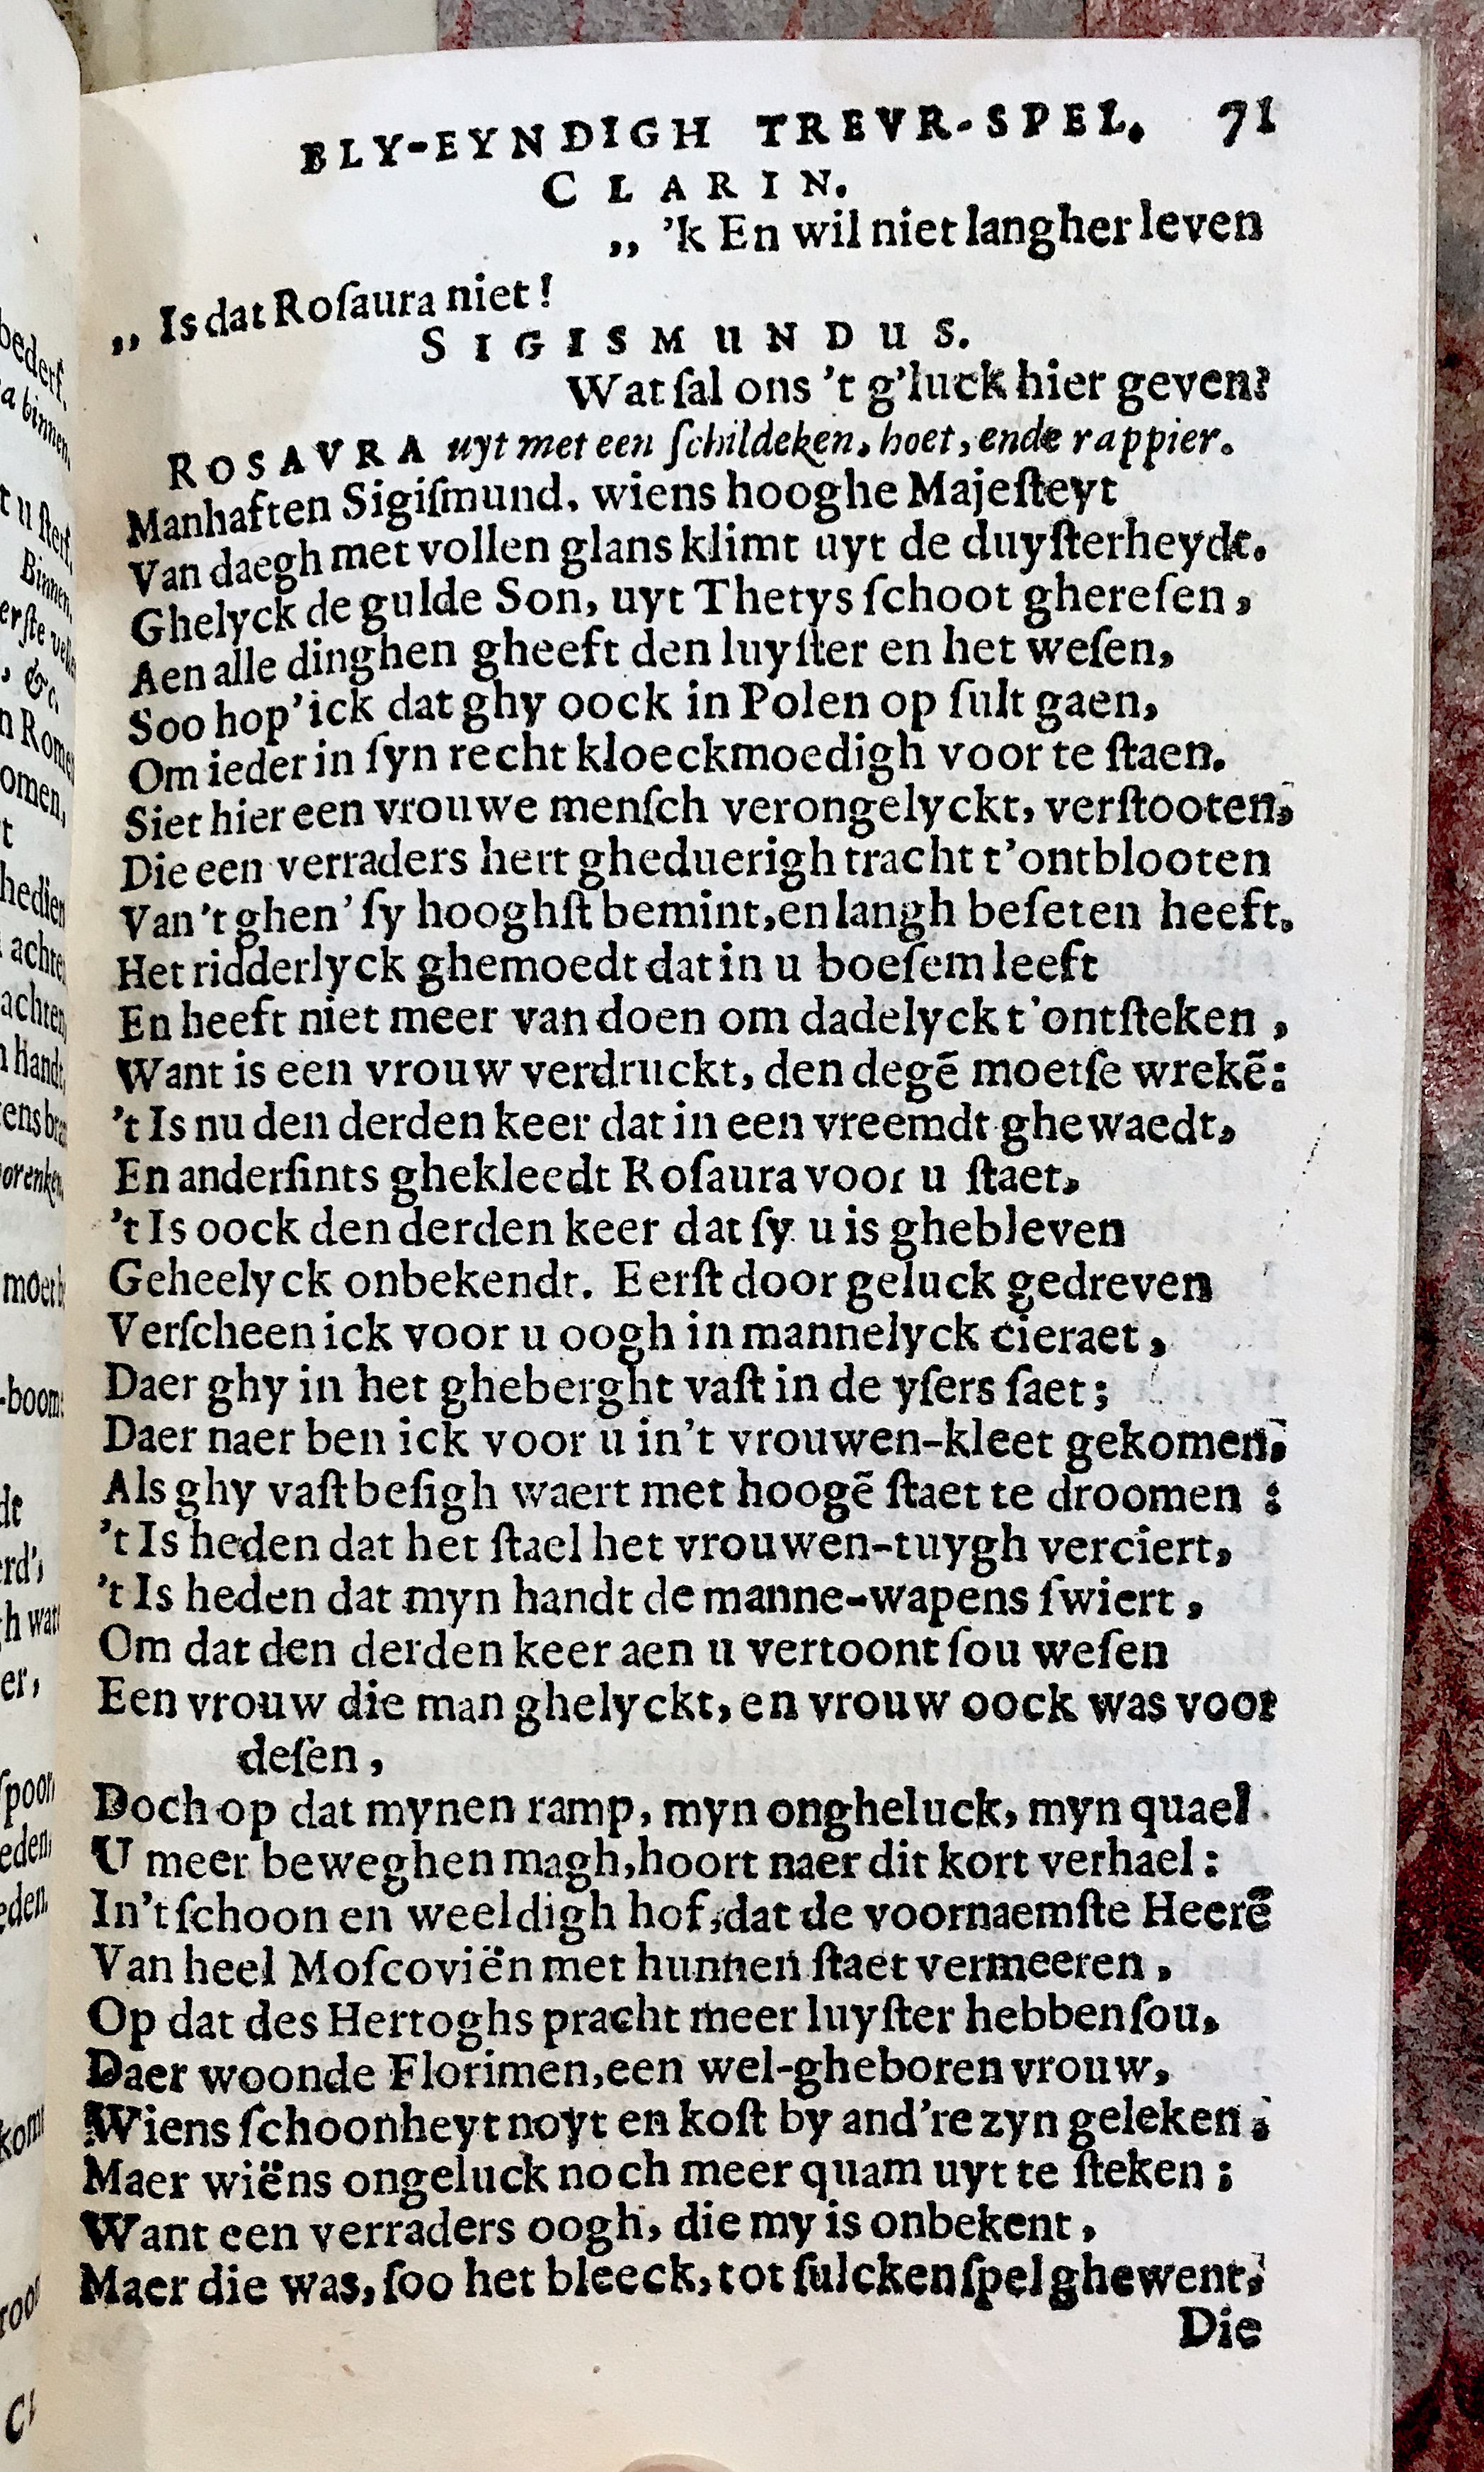 BLY-EYNDIGH TREVR-SPEL. 71
CLARIN.
,, 'k En wil niet langher leven
,, Is dat Roſaura niet!
SIGISMUNDUS.
Wat ſal ons 't g'luck hier geven?
ROSAVRA uyt met een ſchildeken, hoet, ende rappier.
Manhaften Sigiſmund, wiens hooghe Majeſteyt
Van daegh met vollen glans klimt uyt de duyſterheydt.
Ghelyck de gulde Son, uyt Thetys ſchoot ghereſen,
Aen alle dinghen gheeft den luyſter en het weſen,
Soo hop'ick dat ghy oock in Polen op ſult gaen,
Om ieder in ſyn recht kloeckmoedigh voor te ſtaen.
Siet hier een vrouwe menſch verongelyckt, verſtooten,
Die een verraders hert gheduerigh tracht t'ontblooten
Van 't ghen' ſy hooghſt bemint, en langh beſeten heeft.
Het ridderlyck ghemoedt dat in u boeſem leeft
En heeft niet meer van doen om dadelyck t'ontſteken,
Want is een vrouw verdruckt, den degẽ moetſe wrekẽ:
't Is nu den derden keer dat in een vreemdt ghewaedt,
En anderſints ghekleedt Roſaura voor u ſtaet,
't Is oock den derden keer dat ſy u is ghebleven
Geheelyck onbekendt. Eerſt door geluck gedreven
Verſcheen ick voor u oogh in mannelyck cieraet,
Daer ghy in het gheberght vaſt in de yſers ſaet;
Daer naer ben ick voor u in't vrouwen-kleet gekomen,
Als ghy vaſt beſigh waert met hoogẽ ſtaet te droomen:
't Is heden dat het ſtael het vrouwen-tuygh verciert,
't Is heden dat myn handt de manne-wapens ſwiert,
Om dat den derden keer aen u vertoont ſou weſen
Een vrouw die man ghelyckt, en vrouw oock was voor
deſen,
Doch op dat mynen ramp, myn ongheluck, myn quael
U meer beweghen magh, hoort naer dit kort verhael:
In't ſchoon en weeldigh hof, dat de voornaemſte Heerẽ
Van heel Moſcoviën met hunnen ſtaet vermeeren,
Op dat des Hertoghs pracht meer luyſter hebben ſou,
Daer woonde Florimen, een wel-gheboren vrouw,
Wiens ſchoonheyt noyt en koſt by and're zyn geleken,
Maer wiëns ongeluck noch meer quam uyt te ſteken;
Want een verraders oogh, die my is onbekent,
Maer die was, ſoo het bleeck, tot ſulcken ſpel ghewent,
Die